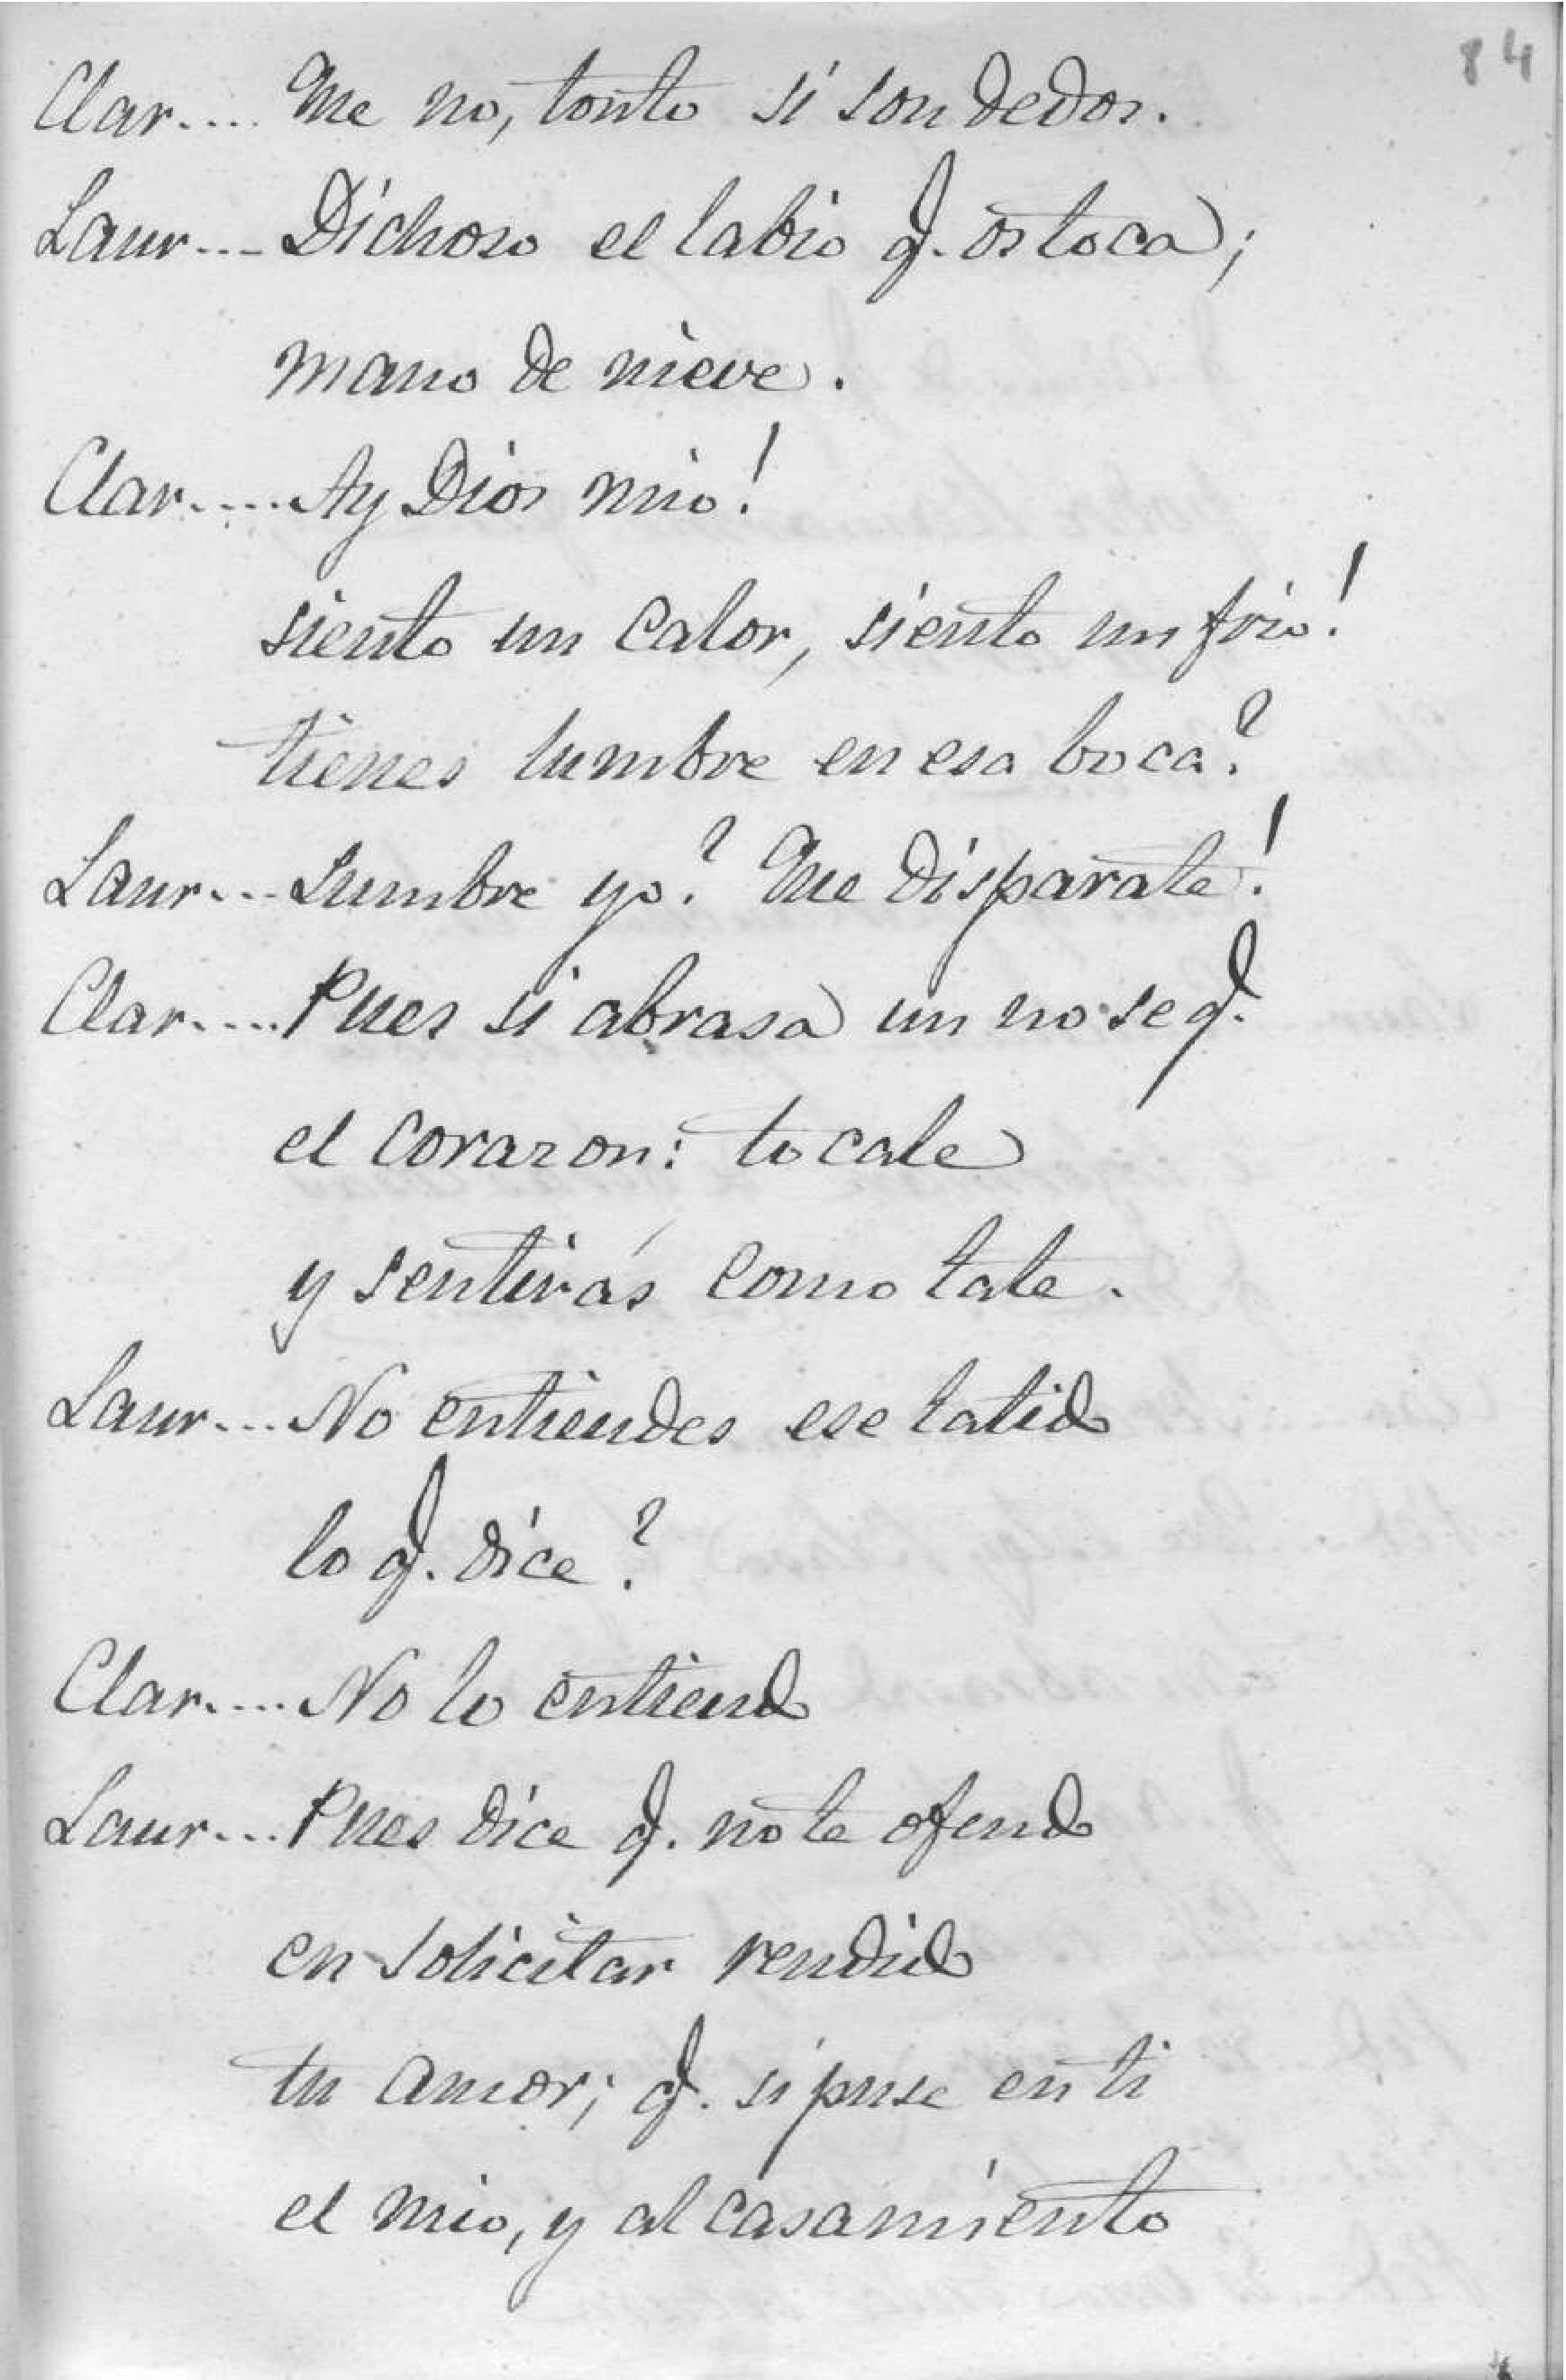 84
Clar.... Que no, tonto si son dedos.
Laur... Dichoso el labio q. os toca;
mano de nieve.
Clar.... Ay Dios mio!
siento un calor, siento un frio!
tienes lumbre en esa boca?
Laur... Lumbre yo? Que disparate!
Clar.... Pues si abrasa un no se q.
el corazon: tocale
y sentirás como late.
Laur... No entiendes ese latido
lo q. dice?
Clar.... No lo entiendo
Laur... Pues dice q. no te ofendo
en solicitar rendido
tu amor; q. si puse en ti
el mio, y al casamiento